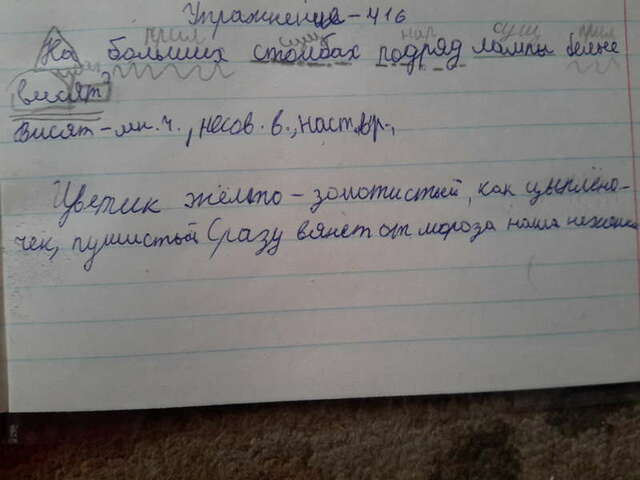 Упражнение-416
прил сущ нар сущ прил
На больших столбах подряд лампы белые
висят³
Висят-мн.ч., несов.в., наст.вр.,
Цветик жёлто-золотистый, как цыплёно-
чек, пушистый Сразу вянет от мороза наша неженка